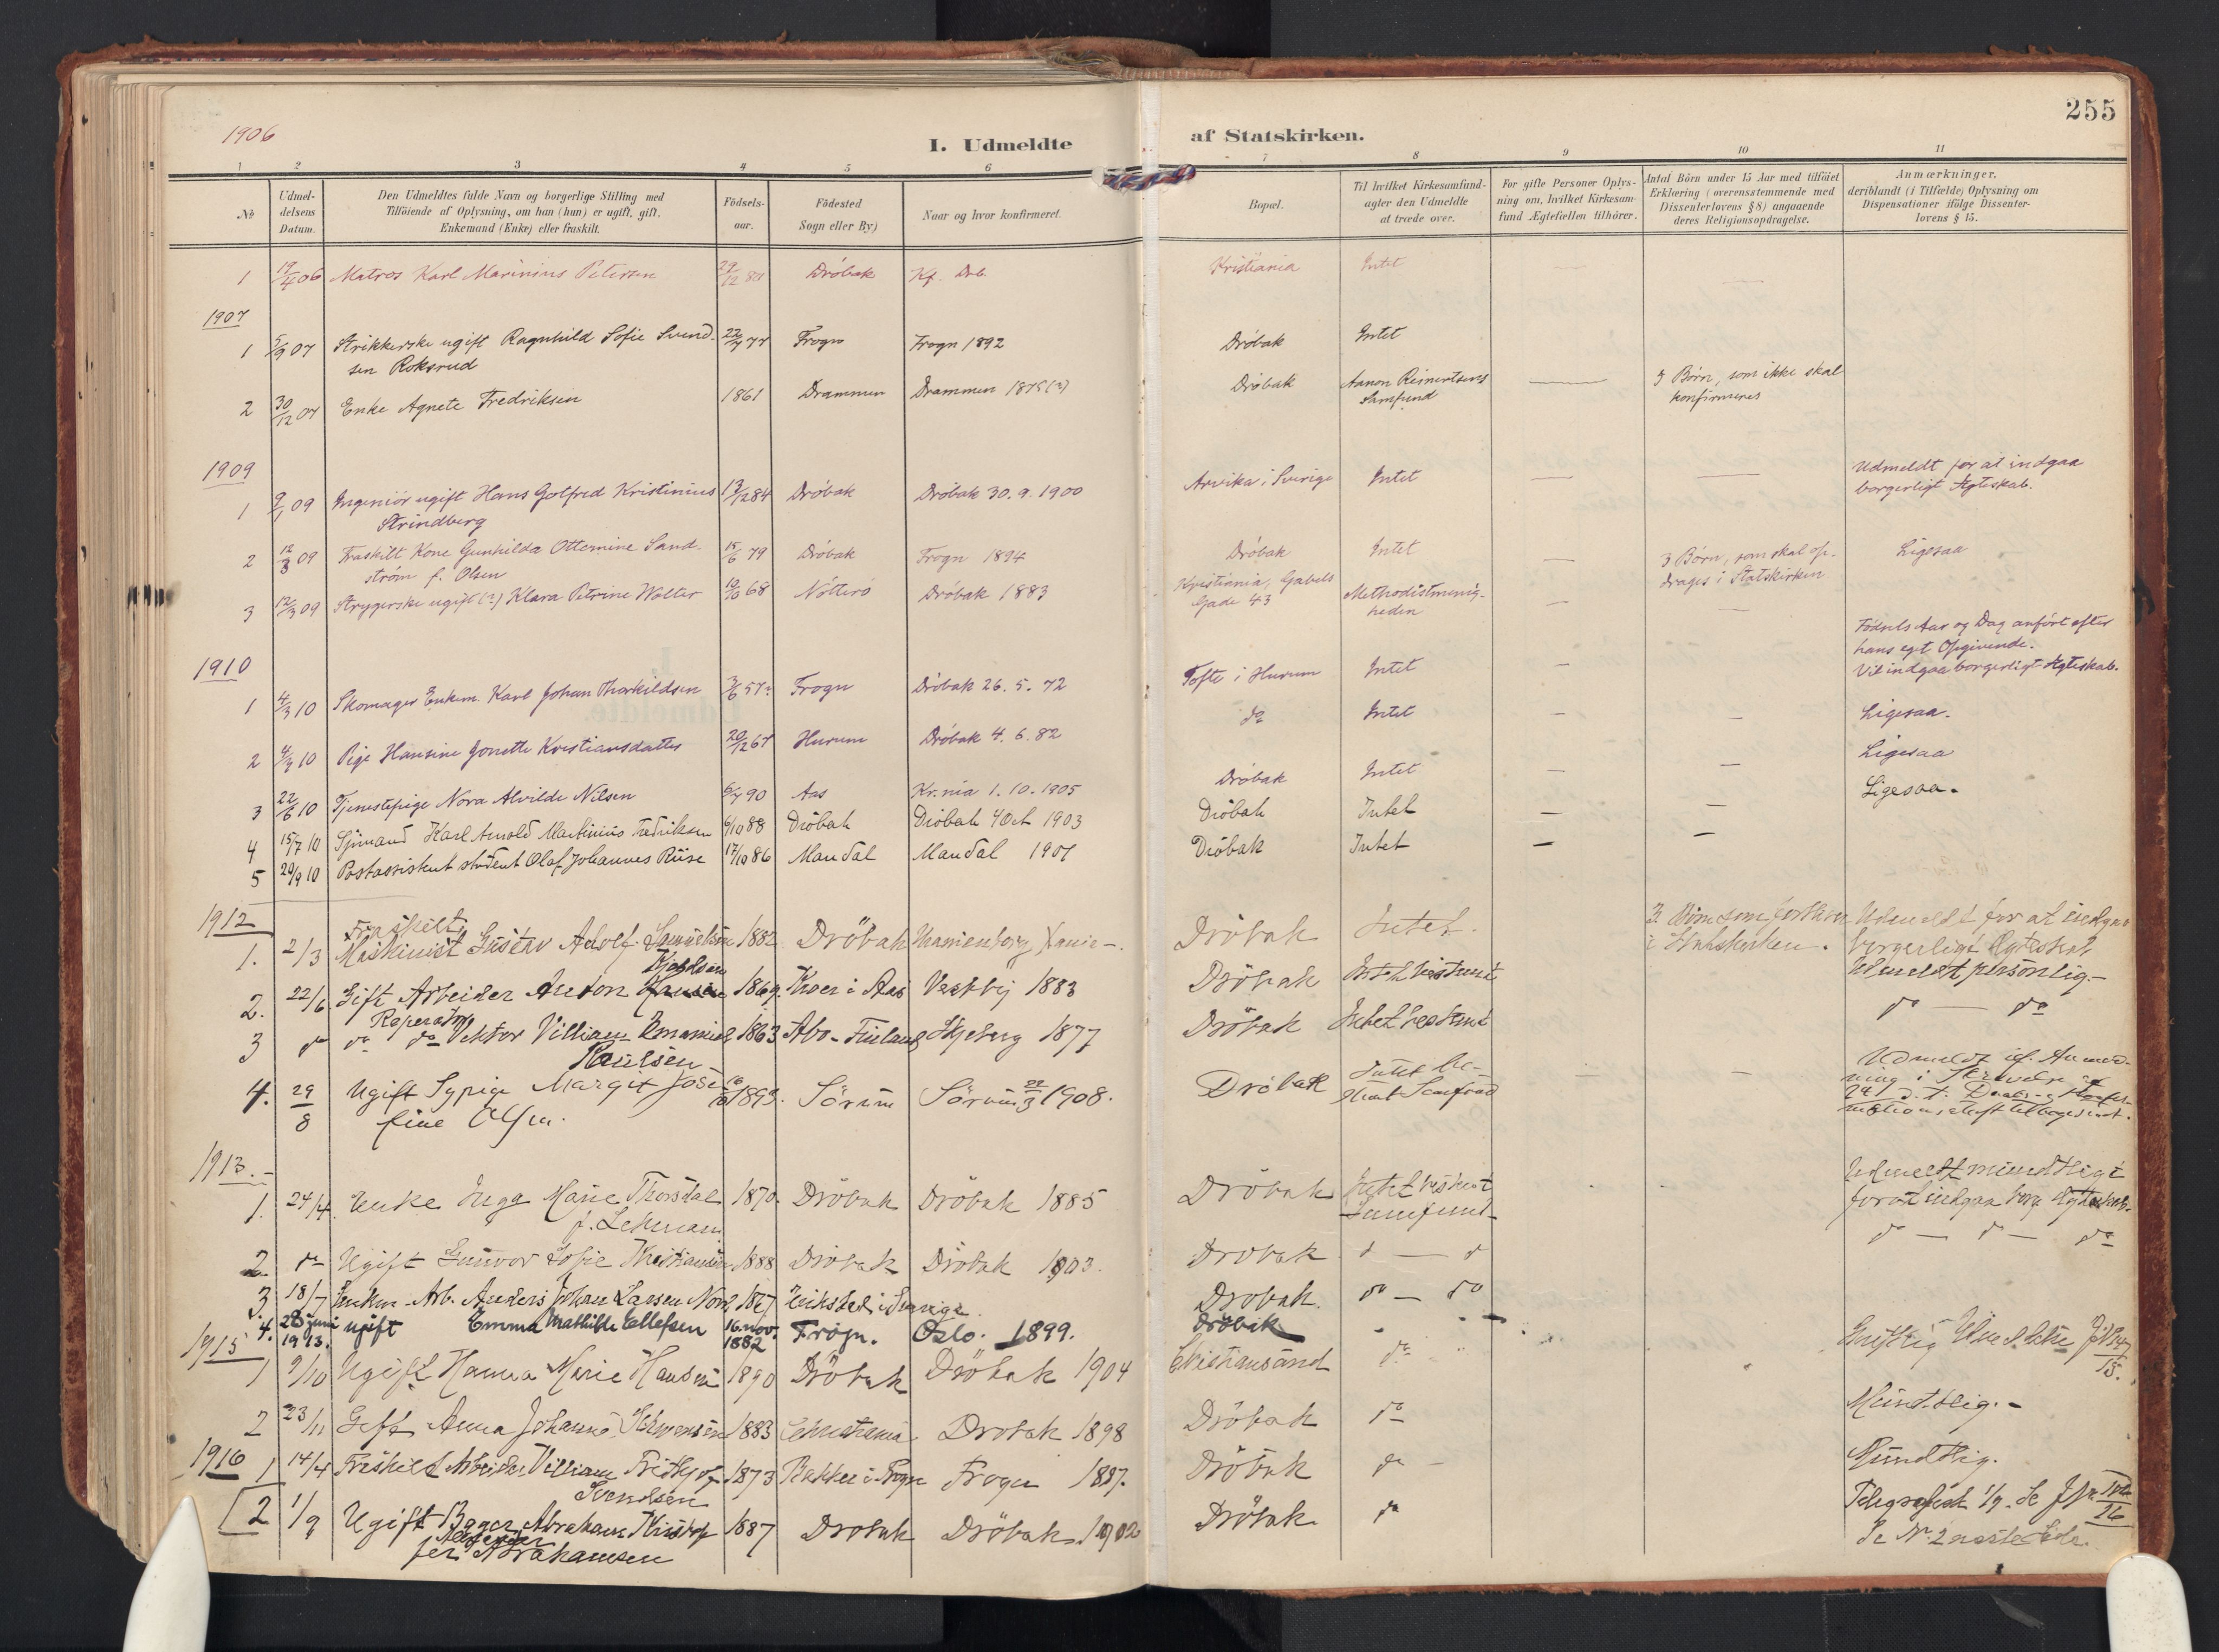 255
1906
I. Udmeldte af Statskirken.
1 2 3 4 5 6 7 8 9 10 11
No
Udmel-
delsens
Datum.
Den Udmeldtes fulde Navn og borgerlige Stilling med
Tilföiende af Oplysning, om han (hun) er ugift, gift,
Enkemand (Enke) eller fraskilt.
Födsels-
aar.
Födested
Sogn eller By)
Naar og hvor konfirmeret.
Bopæl.
Til hvilket Kirkesamfund-
agter den Udmeldte
at træde over.
For gifte Personer Oplys-
ning om, hvilket Kirkesam-
fund Ægtefællen tilhörer.
Antal Börn under 15 Aar med tilföiet
Erklæring (overensstemmende med
Dissenterlovens § 8) angaaende
deres Religionsopdragelse.
Anmærkninger,
deriblandt (i Tilfælde) Oplysning om
Dispensationer ifölge Dissenter-
lovens § 15.
1 06 Matros Karl Marinius Petersen Dröbak Kf. Drb. Kristiania Intet
1907
1 5/9 07 Strikkerske ugift Ragnhild Sofie Svend- 22/7 77 Frogn Frogn 1892 Dröbak Intet
sen Roksrud
2 30/12 07 Enke Agnete Fredriksen 1861 Drammen Drammen 1875(?) Dröbak Aanon Reinertsens 3 Börn, som ikke skal
Samfund konfirmeres
1909
1 9/1 09 Ingeniör ugift Hans Gotfred Kristinius 13/12 84 Dröbak Dröbak 30. 9. 1900 Arvika i Sverige Intet Udmeldt for at indgaa
Strindberg borgerligt Ægteskab.
2 12/3 09 Fraskilt Kone Gunhilda Ottemine Sand- 15/6 79 Dröbak Frogn 1894 Dröbak Intet 3 Börn, som skal op- Ligesaa
ström f. Olsen drages i Statskirken
3 12/3 09 Strygerske ugift (?) Klara Petrine Wolter 10/10 68 Nötterö Dröbak 1883 Kristiania, Gabels Methodistmenig-
Gade 43 heden
1910
Födsels Aar og Dag anfört efter
hans eget Opgivende.
1 4/3 10 Skomager Enkem. Karl Johan Thorkildsen 3/6 57? Frogn Dröbak 26. 5. 72 Tofte i Hurum Intet Vil indgaa borgerligt Ægteskab.
2 4/3 10 Pige Hansine Jonette Kristiansdatter 20/12 67 Hurum Dröbak 4. 6. 82 do Intet Ligesaa.
3 22/6 10 Tjenestepige Nora Alvilde Nilsen 6/7 90 Aas Kr.nia 1. 10. 1905 Dröbak Intet Ligesaa
4 15/7 10 Sjömand Karl Arnold Martinius Fredriksen 6/10 88 Dröbak Dröbak 4 Oct 1903 Dröbak Intet Ligesaa.
5 20/9 10 Postassistent student Olaf Johannes Riise 17/10 86 Mandal Mandal 1901 Dröbak Intet
1912
Fraskilt
1. 2/3 Maskinist Gustav Adolf Samuelsen 1882 Dröbak Uranienborg Xania. Dröbak Intet. 3 Börn som Udmeldt for at indgaa
i Statskirken. borgerligt Ægteskab
2. 22/6 Gift Arbeider Anton Kjeldsen 1869. Kroer i Aas Vestby 1883 Dröbak Intet bestemt Udmeldt personlig.
3 do do do Reperatör Viktor Villiam Emanuel 1863 Åbo - Finland Skjeberg 1877 Dröbak Intet bestemt do — do
Paulsen
4. 29/8 Ugift Sypige Margit Jose- 1893. Sörum Sörum 22/3 1908. Dröbak Intet be-
fine Olsen. stemt Samfund
1913.
1. 24/4 Enke Inga Marie Thorsdal 1870. Dröbak Dröbak 1885 Dröbak Intet bestemt Udmeldt mundtligt
f. Lehmann Samfund for at indgaa borg. Ægteskab.
2. do Ugift Gunvor Sofie Kristiansen 1888 Dröbak Dröbak 1903. Dröbak do — do do — do — do
3. 18/7 Enkm. Arb. Anders Johan Larsen Nord i Sverige. Dröbak. do — do
4. 28 juni 1913. ugift Emma Mathilde Ellefsen 16. nov. 1882 Frogn. Oslo. 1899. Dröbak
1915
1 9/10 Ugift Hanna Marie Hansen 1890 Dröbak Dröbak 1904 Christiansand do Skriftlig
15.
2 23/11 Gift Anna Johanne 1883 Christiania Dröbak 1898 Dröbak do Mundtlig.
1916
1 14/4 Fraskilt Arbeider Villiam Fridtjof 1873 Bakker i Frogn Frogn 1887. Dröbak do Mundtlig.
Svendsen
2 1/9 Ugift Bager Abraham 1887 Dröbak Dröbak. 1902 Dröbak do Telegrafisk 1/9. Se
Abrahamsen Se No. 2 næste Side.